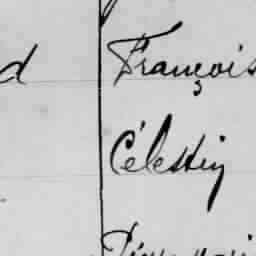 d François
Célestin